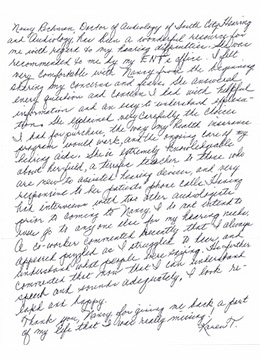 Nancy Richman, Doctor of Audiology of South City Hearing
and Audiology has been a wonderful resource for
me with regard to my hearing difficulties. She was
recommended to me by my ENT's office. I felt
very comfortable with Nancy from the beginning
sharing my concerns and fears. She answered
every question and concern I had with helpful
information and an easy to understand explana-
tion. She explained very carefully the choices
I had for purchase, the way my health insurance
program would work, and the ongoing care of my
hearing aids. She is extremely knowledgeable
about her field, a terrific teacher to those who
are new to assisted hearing devices, and very
responsive to her patients phone calls. Having
had interviews with two other audiologists
prior to coming to Nancy, I do not intend to
ever go to anyone else for my hearing needs.
A co-worker commented recently that I always
appeared puzzled as I struggled to hear and
understand what people were saying. She further
commented that now that I can understand
speech and sounds adequately, I look re-
laxed and happy.
Thank you, Nancy for giving me back a part
of my life that I was really missing!
Karen T.